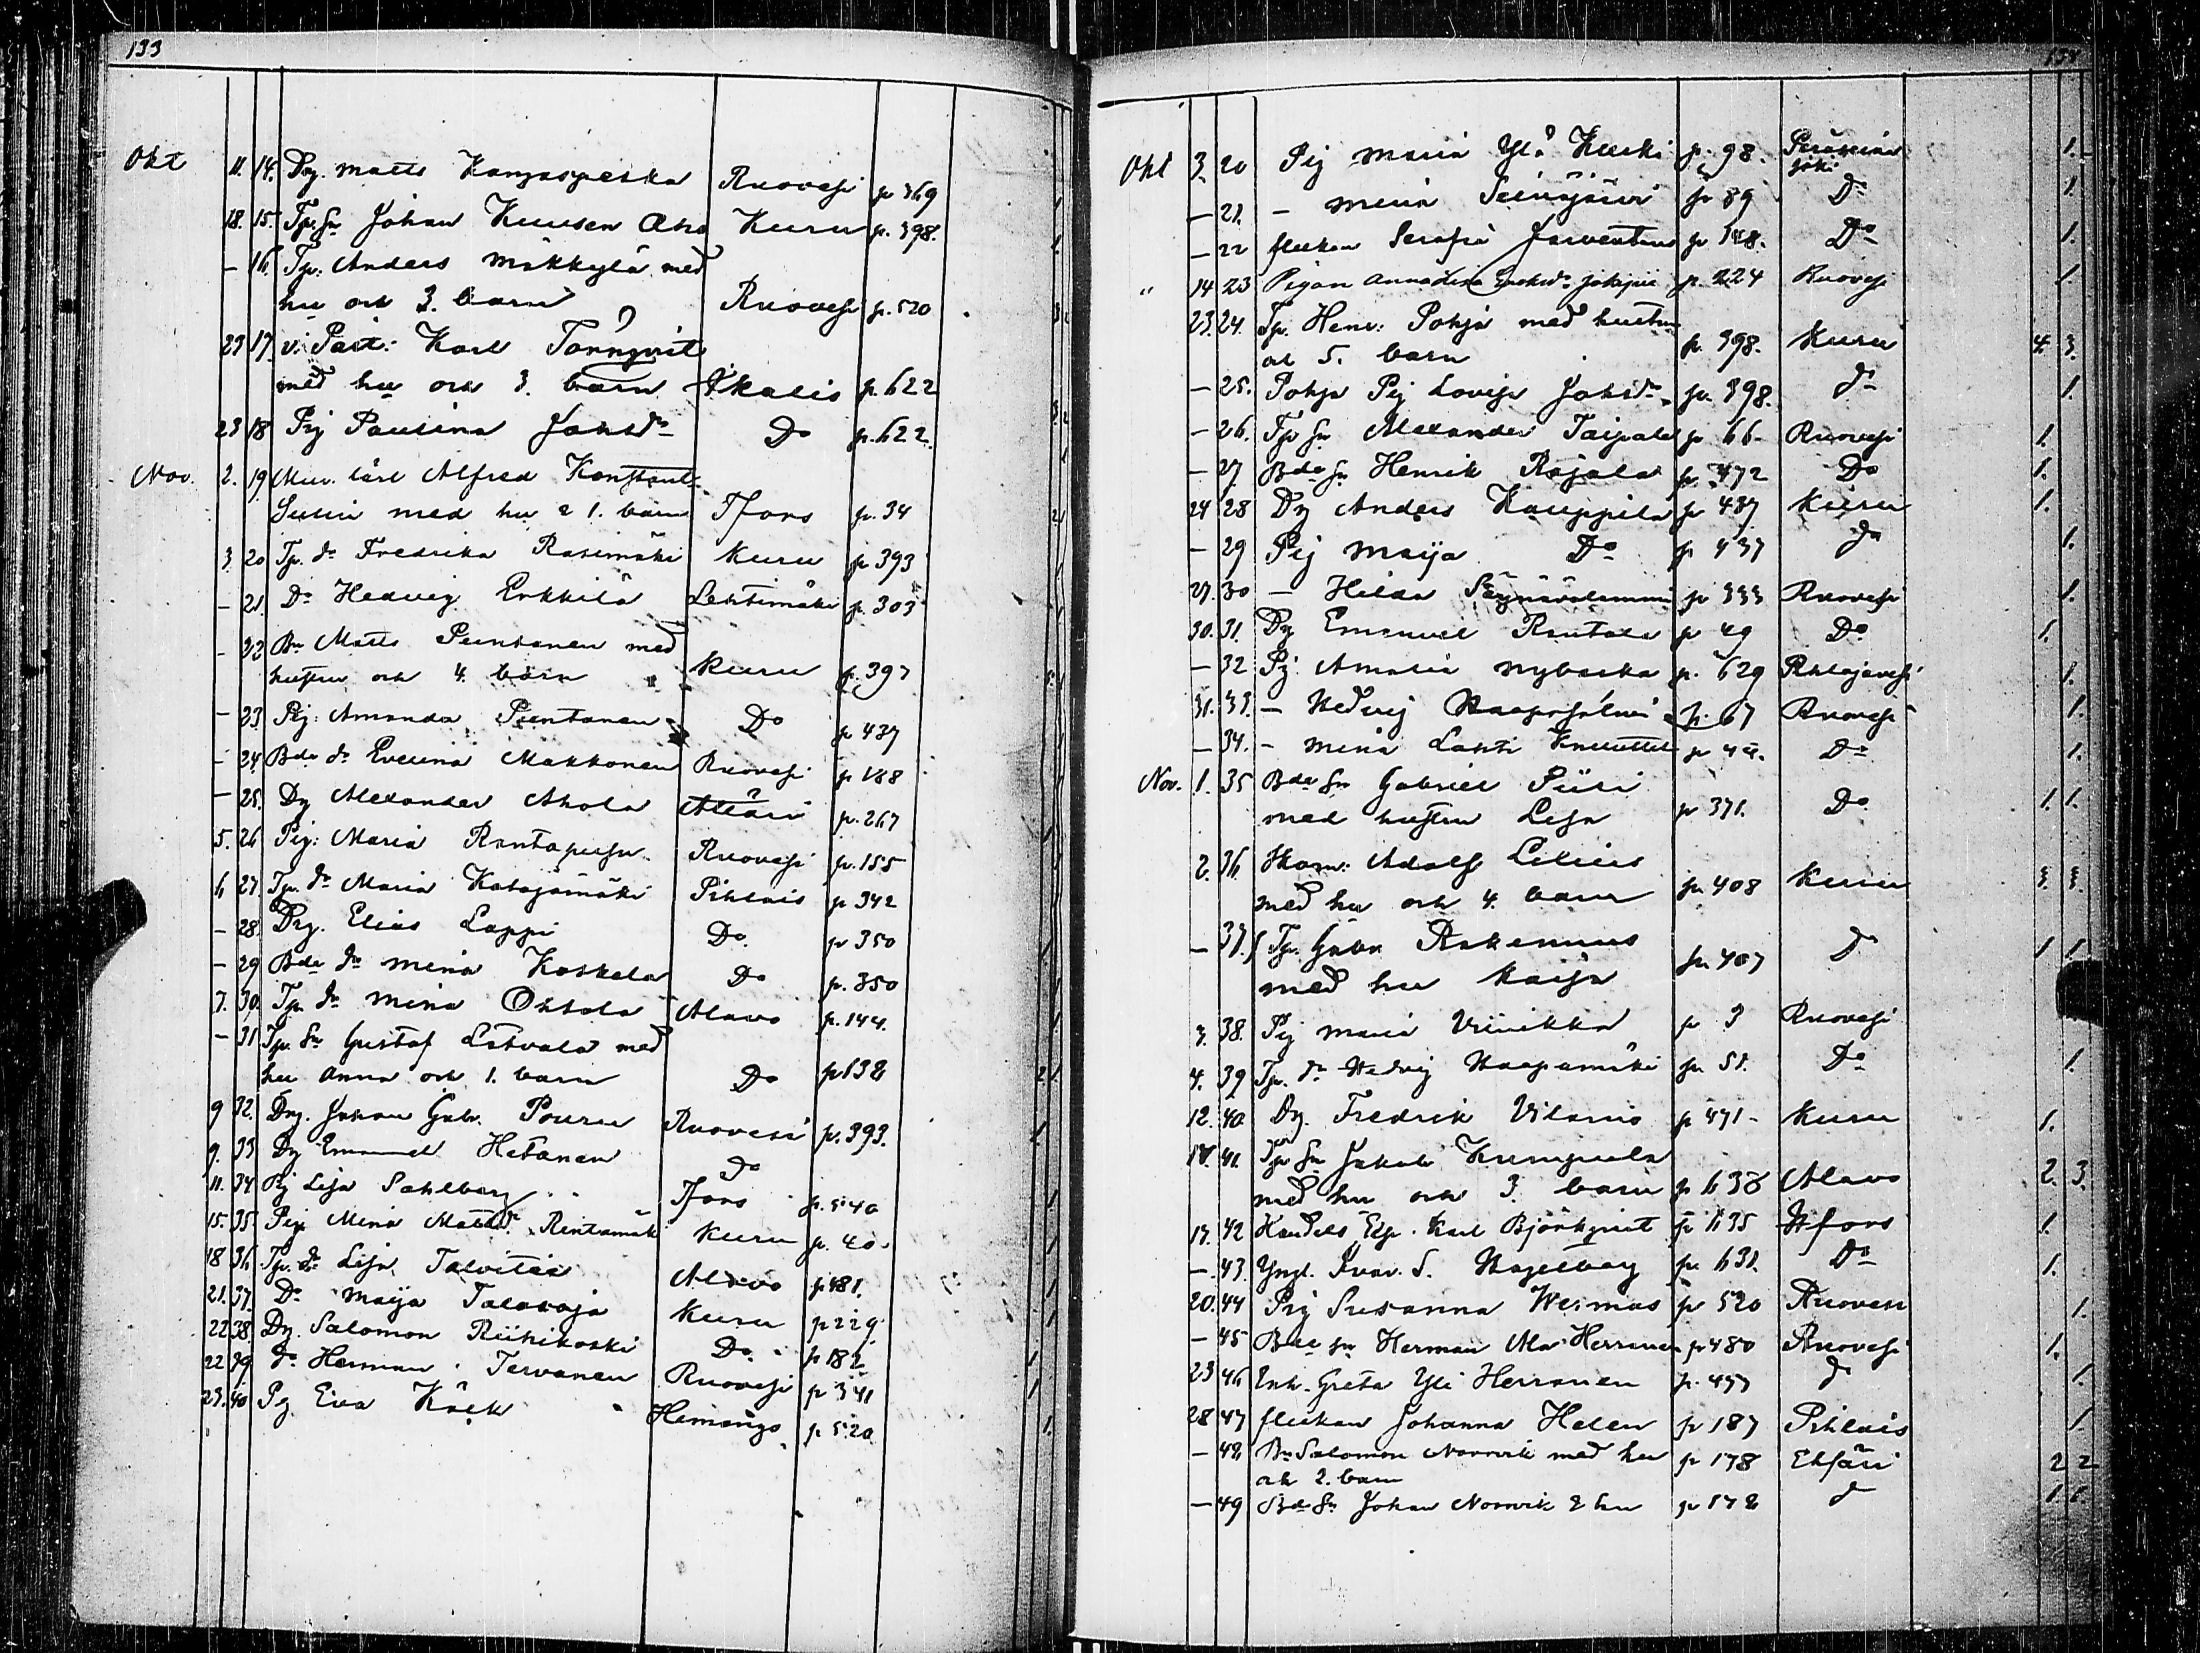 133
Okt 11. 14. Drg. Matts Kangaspeska Ruovesi p 369
18. 15. Tp. Sn Johan Kuusen Aho Kuru p. 398.
— 16. Tp: Anders Mäkkylä med
hu och 3. barn Ruovesi p. 520 3
23 17. v. Past: Karl Törnqvist
med hu och 3. barn Ikalis p. 622
23 18 Pig Paulina Johsdr Do p. 622.
Nov. 2. 19 Mur. lärl Alfred Konstant
med hu & 1. barn Tfors p. 34
3. 20 Tp. dr Fredrika Rasimäki Kuru p 393
— 21. Do Hedvig Erkkilä Lehtimäki p. 303
— 22 Bn Matts Puntanen med
hustru och 4. barn Kuru p. 397
— 23. Pig: Amanda Puntanen Do p 437
— 24. Bde dr Evelina Makkonen Ruovesi p 188
— 25. Dg Alexander Ahola Attäri p. 267
5. 26 Pig: Maria Ruovesi p. 155
6 27. Tp. dr Maria Katajamäki Pihlais p 342
— 28. Drg. Elias Lappi Do. p 350
— 29 Bde dr Mina Koskela Do p. 350
7. 30. Tp. dr Mina Oksola Alavo p. 144.
— 31 Tp. Sn Gustaf Latvala med
hu Anna och 1. barn Do p 632 2 1.
9 32. Drg. Johan Gabr. Pouru Ruovesi p. 393. 1
9. 33 Dg Emanuel Hetanen Do
11. 34 Pig Lisa Sahlberg Tfors p. 540 1
15. 35. Pig Mina Matsdr Rintamäki Kuru p. 40. 1
18 36. Tp. dr Lisa Talvitie Alavo p 481. 1
21. 37. Do Maija Talasoja Kuru p 229 1
22 38. Dg. Salomon Riihikoski Do p 182 1
22 39 do Herman Tervanen Ruovesi p 341 1
23. 40 Pg Eva Käck Hemängs p 520 1.
Okt 3. 20 Pig Maria Ylä Kuski p. 98. 1.
— 21. — Mina Seinäjärvi p 89 Do 1.
— 22 flickan Serafia p 148. Do 1.
" 14 23 Pigan Annalisa p. 224 Ruovesi 1.
23. 24. Tp. Henr: Pohja med hustru
och 5. barn p. 398. Kuru 4. 3.
— 25. Pohja Pig Lovisa Johsdr p. 398. do 1.
— 26. Tp Sn Alexander Taipale p 66 Ruovesi 1.
— 27 Bde Sn Henrik Rajala p. 472 Do 1.
24 28 Dg Anders Kauppila p 437 Kuru 1.
— 29 Pig Maija Do p 437 do 1.
27. 30 — Hilda p 333 Ruovesi 1.
30. 31. Dg Emanuel Rantala p 49 Do 1.
— 32 Pg Amalia Nybacka p. 629 Pihlajavesi 1.
31. 33. — Hedvig p. 67 Ruovesi 1.
— 34. — Mina Lahti Knuuttila p 44. Do 1.
Nov. 1. 35 Bde Sn Gabriel Piili
med hustru Lisa p 371. Do 1. 1.
2. 36 Skom: Adolf Lilius
med hu och 4. barn p. 408 Kuru 3. 3.
— 37. Tp. Gabr. Askenius
med hu Kaisa p. 407 do 1 1.
3. 38. Pig Maria Viinikka p 3 Ruovesi
4. 39 Tp. dr Hedvig Haapamäki p. 51. Do 1.
12. 40. Dg. Fredrik Vilanis p 471 Kuru 1.
17. 41. Tp Sn Jakob Kumpula
med hu och 3. barn p 638 Alavo 2. 3.
19. 42 Handels Exp. Karl Björkqvist p 635 Hfors 1.
— 43. Yngl. Ivar. S. Hagelberg p. 631. Do 1.
20. 44 Pig Susanna Weimas p 520 Ruovesi 1.
— 45 Bde sn Herman Ala Herranen p 480 Ruovesi 1.
23 46 Enk. Greta Yli Herranen p. 457 do 1.
28 47 flickan Johanna Helen p 187 Pihlais 1.
— 48 Bn Salomon Norrvik med hu
och 2. barn p 178 Etsäri 2 2
— 49 Bde Sn Johan Norrvik & hu p 178 do 1 1